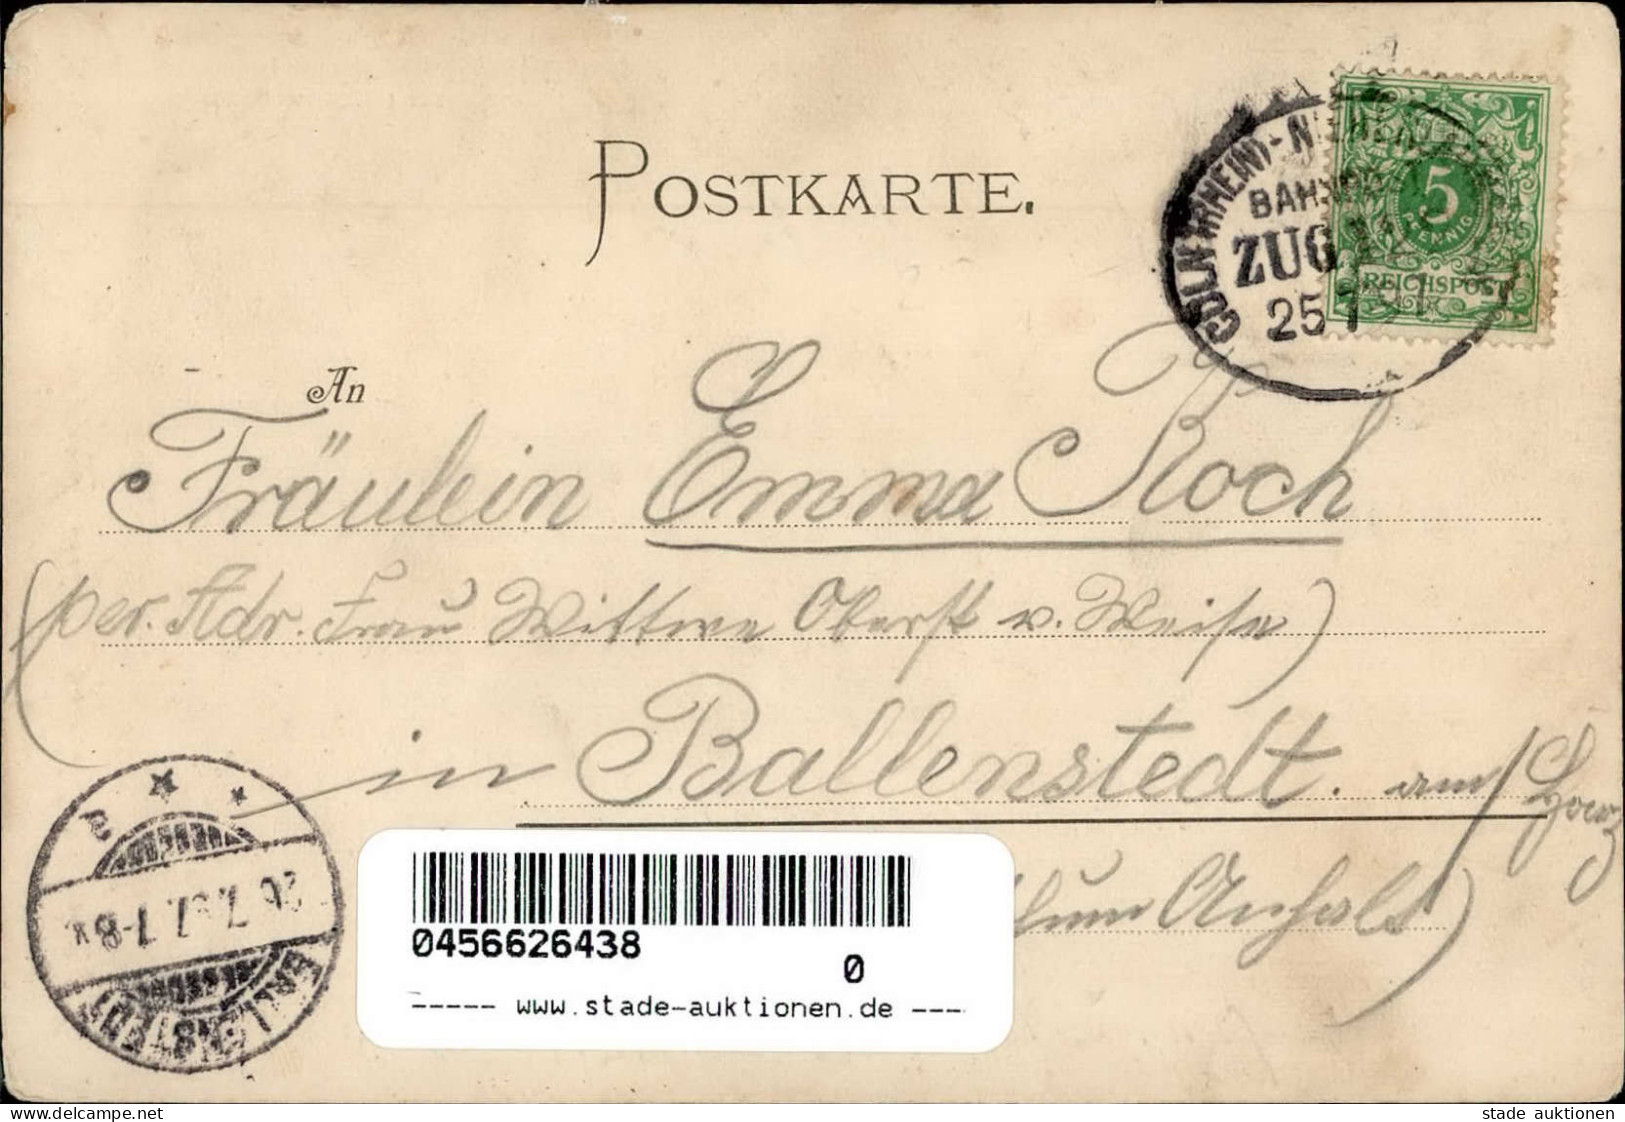 POSTKARTE.
CÖLN (RHEIN)-
BAHNPOST
ZUG
25 7
5
PFENNIG
REICHSPOST
An
Fräulein Emma Koch
(per. Adr. Frau Wittwe Oberst v. Weise)
in Ballenstedt. am Harz
thum Anhalt)
26.7. 97. 7-8 V.
BALLENSTEDT
0456626438
0
----- www.stade-auktionen.de ---
www.delcampe.net
stade auktionen